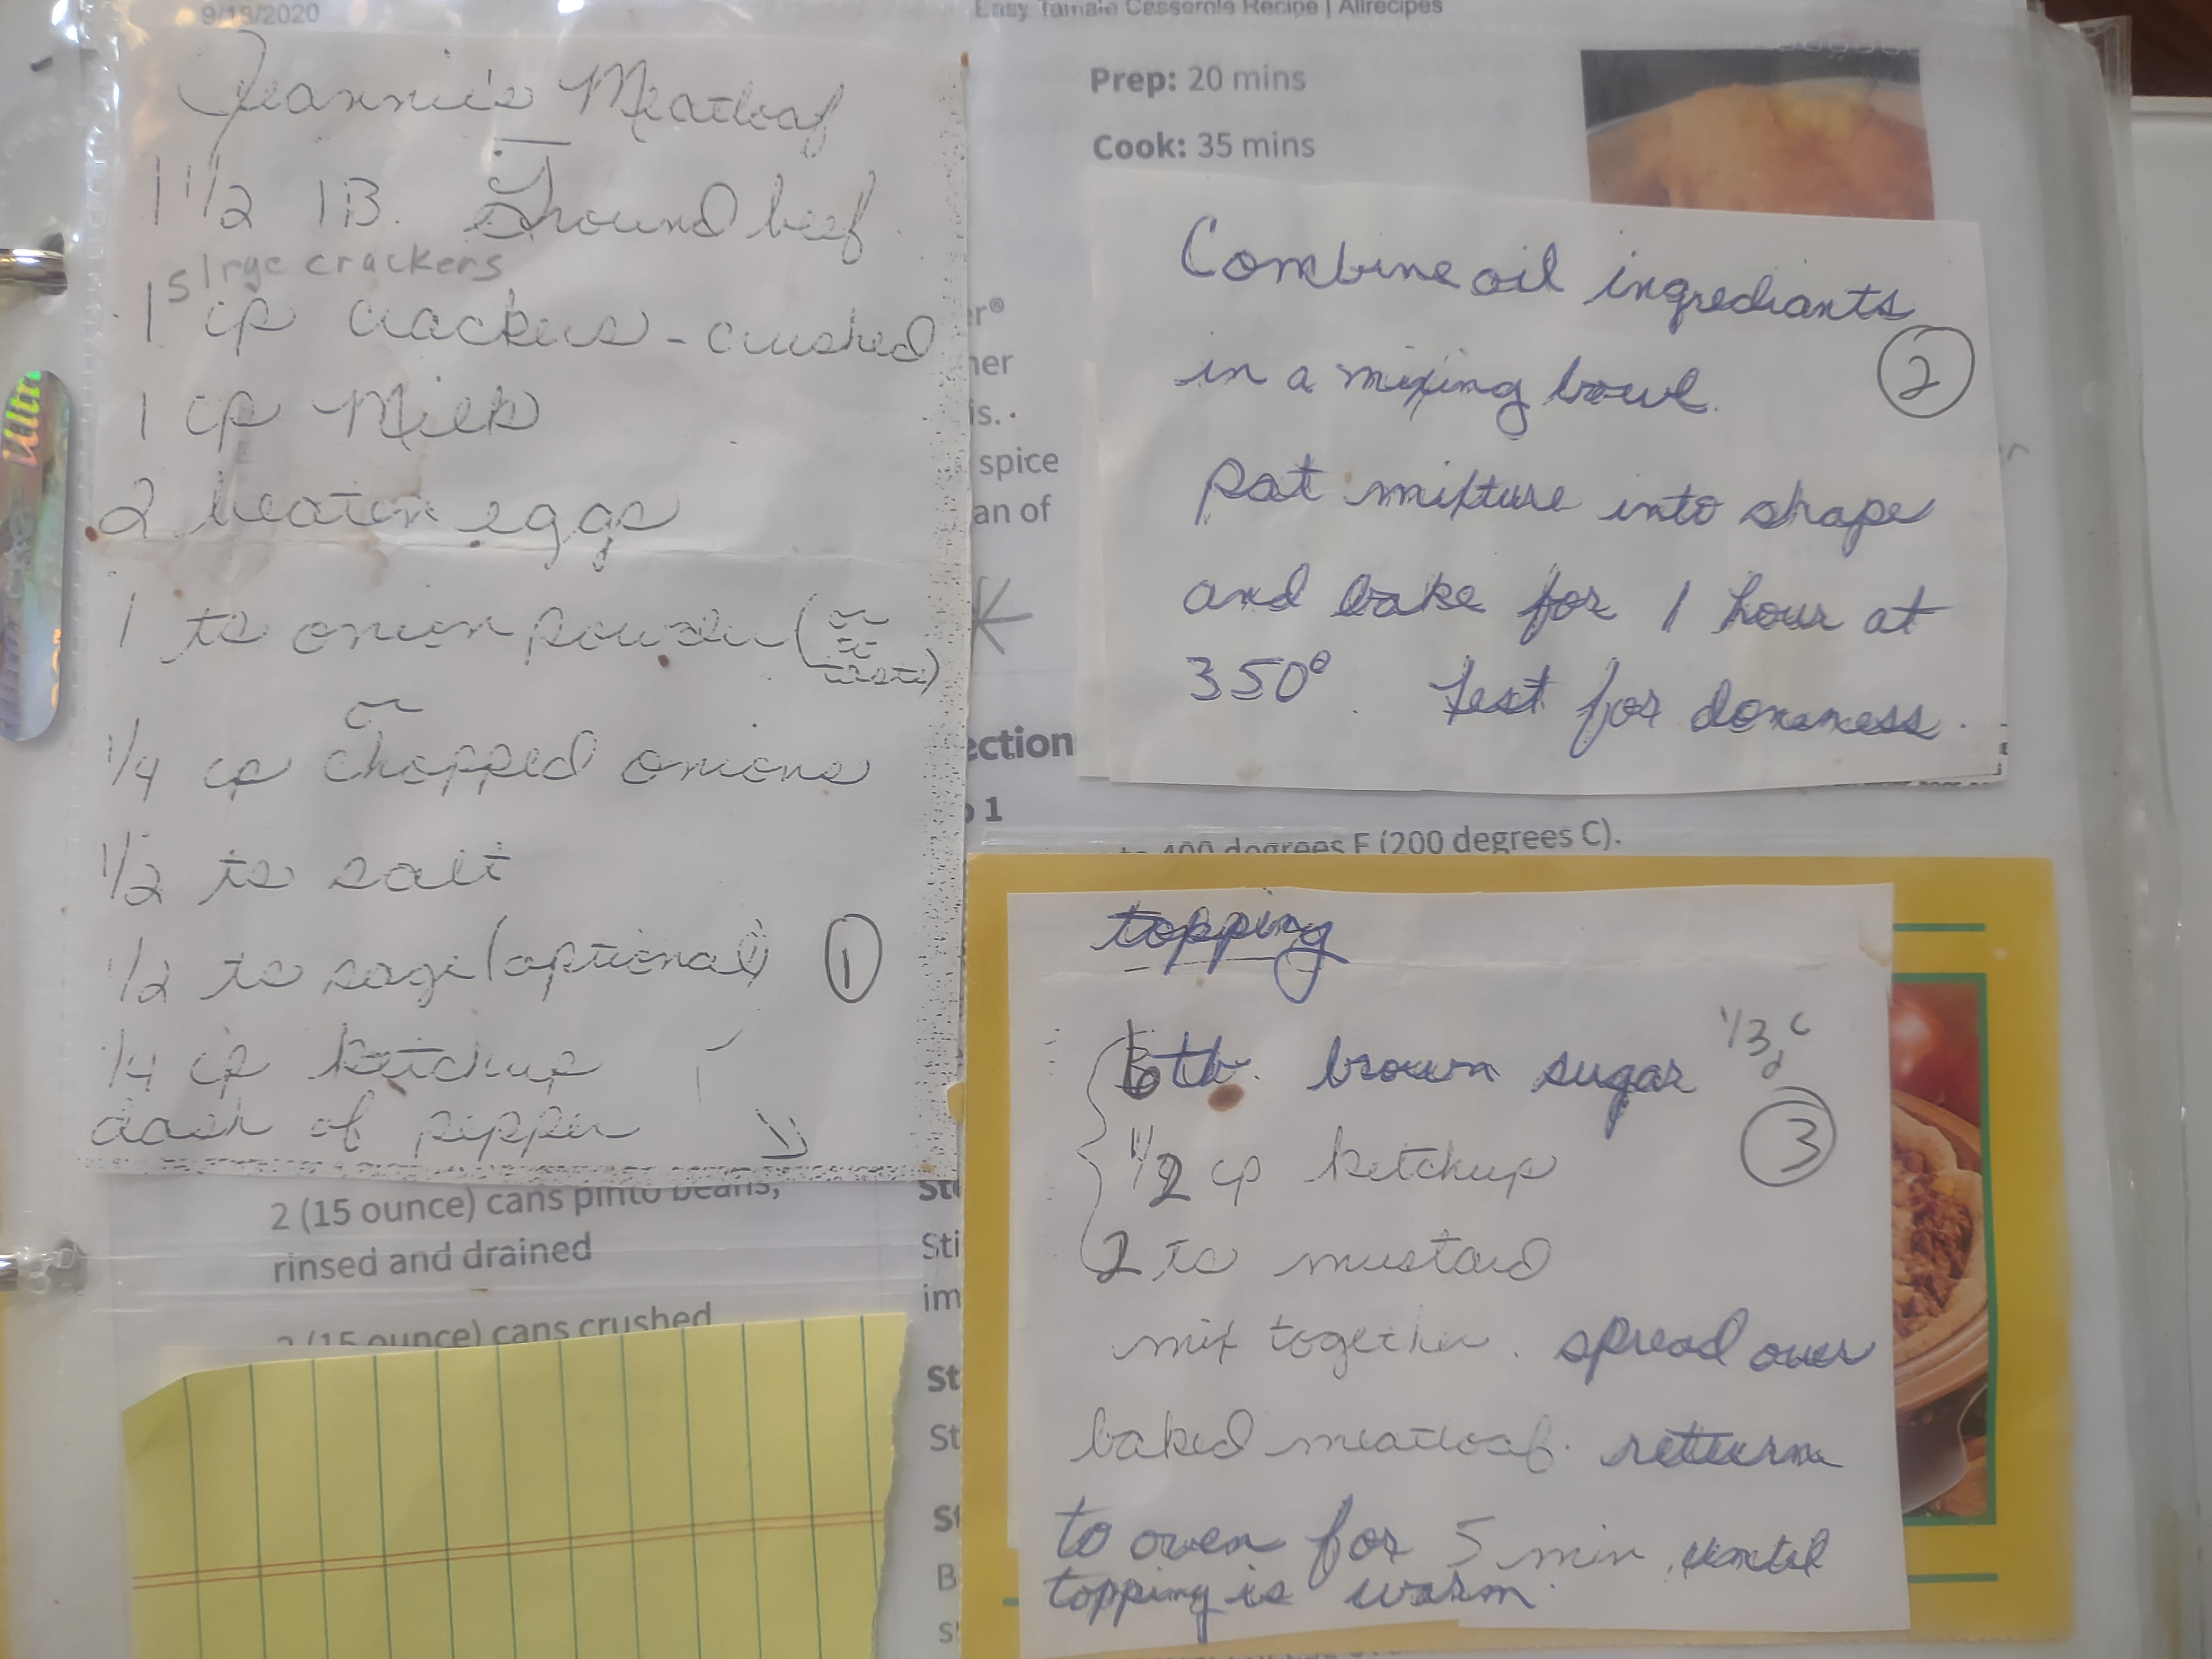 9/18/2020
Easy Tamale Casserole Recipe | Allrecipes
Jeannie's Meatloaf
1 1/2 lB. Ground beef
5 lrge crackers
1 cp crackers - crushed
1 cp Milk
2 beaten eggs
1 ts onion powder (or
to
taste)
or
1/4 cp chopped onions
1/2 ts salt
1/2 ts sage (optional) 1
1/4 cp ketchup
dash of pepper
2 (15 ounce) cans pinto beans,
rinsed and drained
2 (15 ounce) cans crushed
Prep: 20 mins
Cook: 35 mins
Combine all ingrediants
in a mixing bowl. 2
pat mixture into shape
and bake for 1 hour at
350°. Test for doneness.
er®
her
is.
spice
an of
ection
p 1
to 400 degrees F (200 degrees C).
topping
6 tb. brown sugar 1/3 c
1/2 cp ketchup 3
2 ts mustard
mix together. spread over
baked meatloaf. retturn
to oven for 5 min, until
topping is warm.
Sti
im
St
St
St
B
s